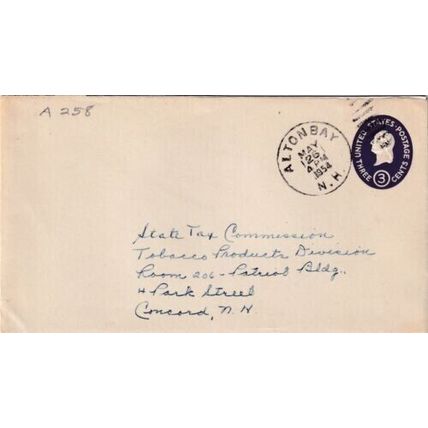 A 258
ALTON BAY
MAY
26
4 PM
1954
N.H.
UNITED STATES POSTAGE
3
THREE CENTS
State Tax Commission
Tobacco Products Division
Room 206 - Patriot Bldg.
4 Park Street
Concord, N. H.